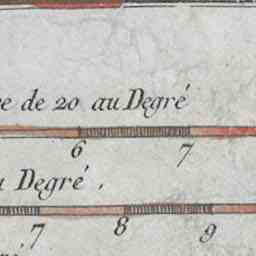 de 20 au Degré
6 7
Degré.
7 8 9